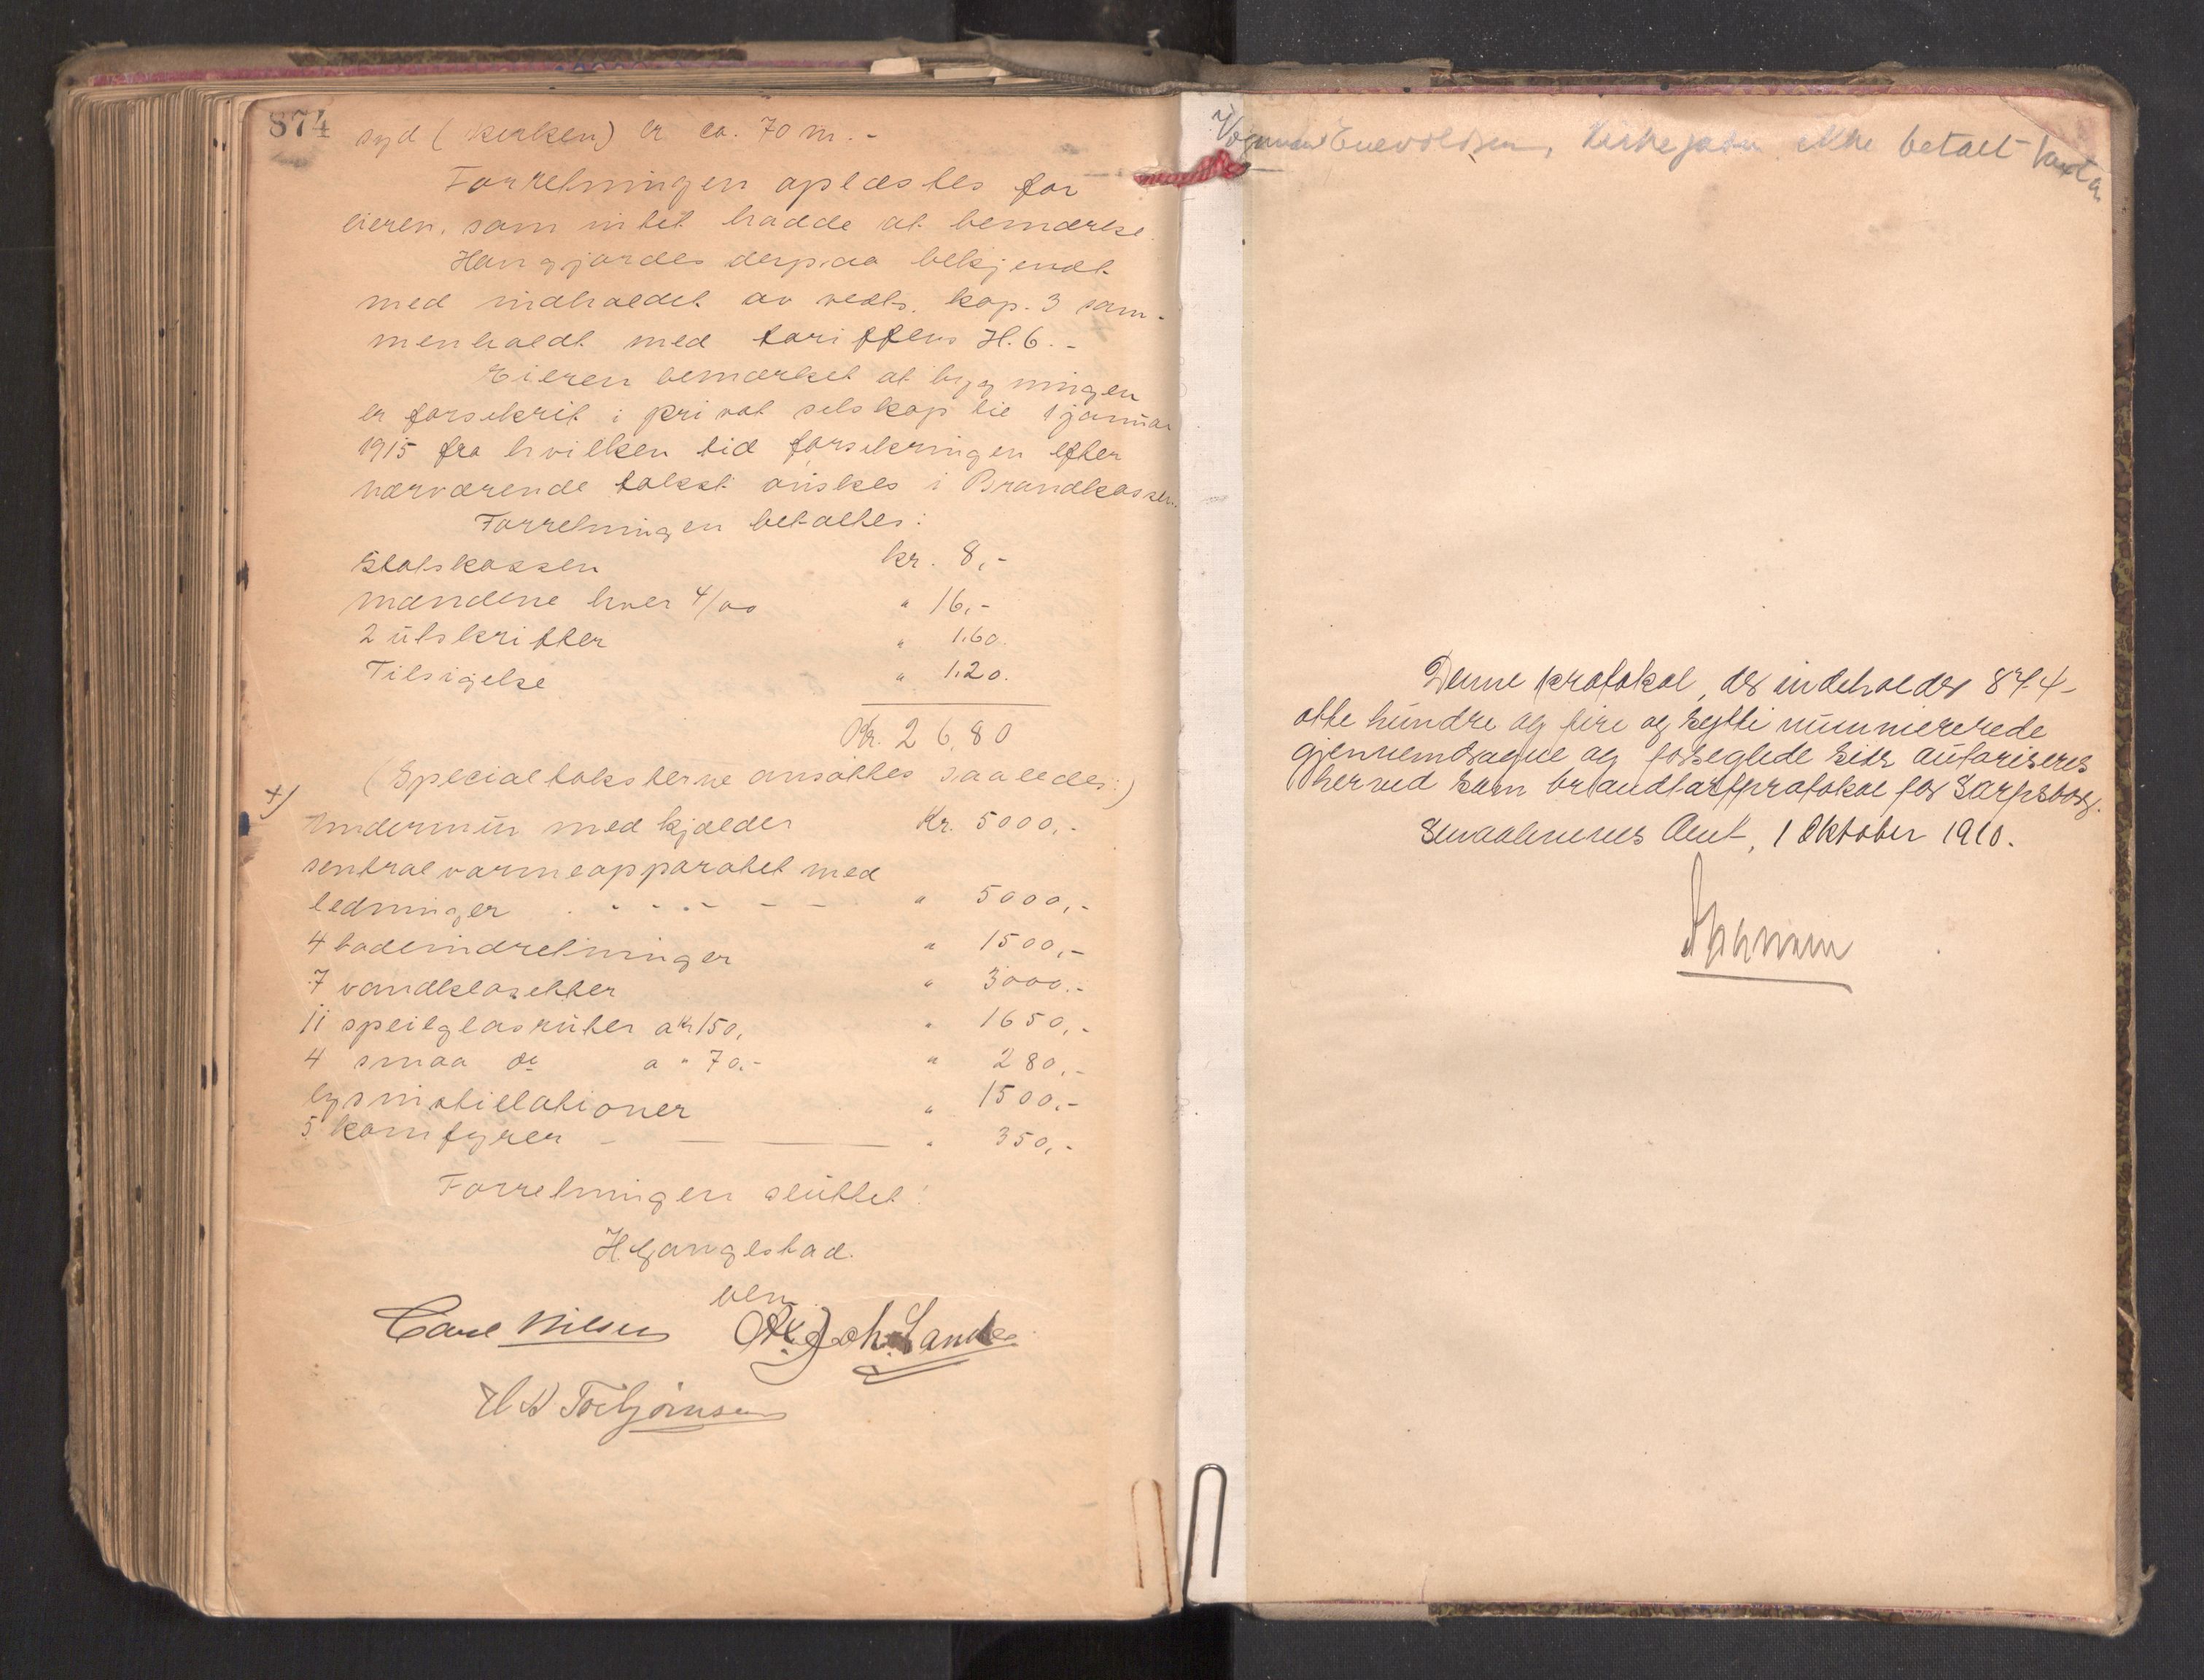 874
syd (kirken) er ca. 70 m. -
Forretningen oplæstes for
eieren, som intet hadde at bemærke.
Han gjordes derpaa bekjendt
med indholdet av vedts. kap. 3 sam-
menholdt med tariffens H. 6. -
Eieren bemærket at bygningen
er forsikrit i privat selskap til 1 januar
1915 fra hvilken tid forsikringen efter
nærværende takst ønskes i Brandkassen.
Forretningen betaltes:
Statskassen kr. 8,-
Mændene hver 4/00 " 16,-
2 utskrifter " 1.60.
Tilsigelse " 1.20.
Kr. 26,80
(Specialtaksterne ansattes saaledes:)
+) Undermur med kjælder Kr. 5000,-
sentralvarmeapparatet med
ledninger " 5000,-
4 badeindretninger " 1500,-
7 vandklosetter " 3000.-
11 speilglasruter a kr 150, " 1650,-
4 smaa do a " 70.- " 280,-
lysinstallationer " 1500.-
5 komfyrer - " 350,-
Forretningen sluttet!
H. Gangestad.
Carl Nilsen Joh. Lande
Torbjørnsen
Enevoldsen, ikke betalt taxten
Denne protokol, der indeholder 874-
otte hundre og fire og sytti nummererede
gjennemdragne og forseglede sider autoriseres
herved som brandtaxtprotokol for Sarpsborg.
Smaalenenes Amt, 1 Oktober 1910.